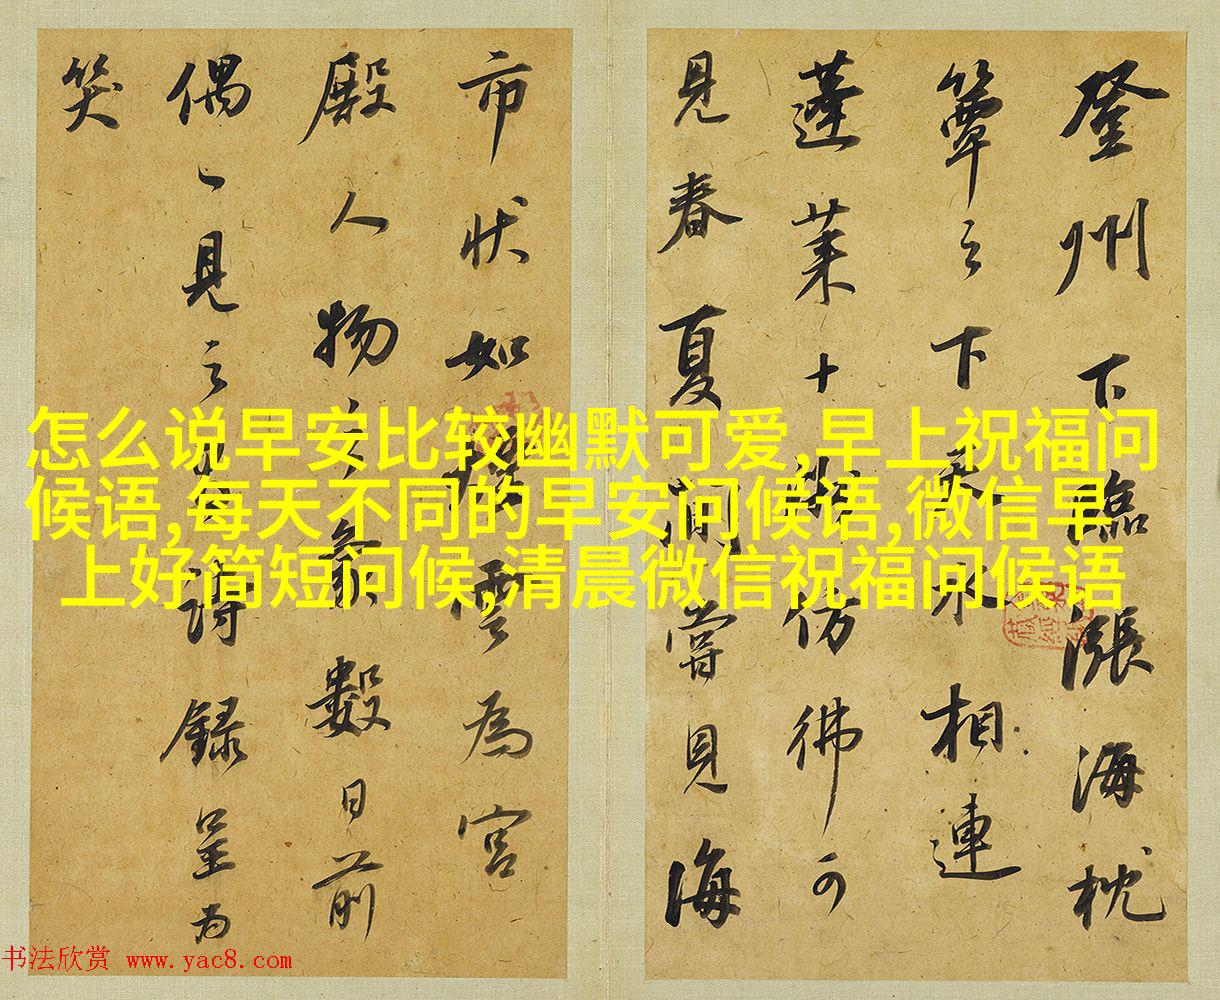 登州下臨漲海枕
簟之下天水相連
蓬莱十仿彿可
見春夏間嘗見海
市狀如雲為宮
殿人物之象數日前
偶一見之詩錄呈為
笑
怎么说早安比较幽默可爱,早上祝福问
候语,每天不同的早安问候语,微信早
上好简短问候,清晨微信祝福问候语
书法欣赏 www.yac8.com